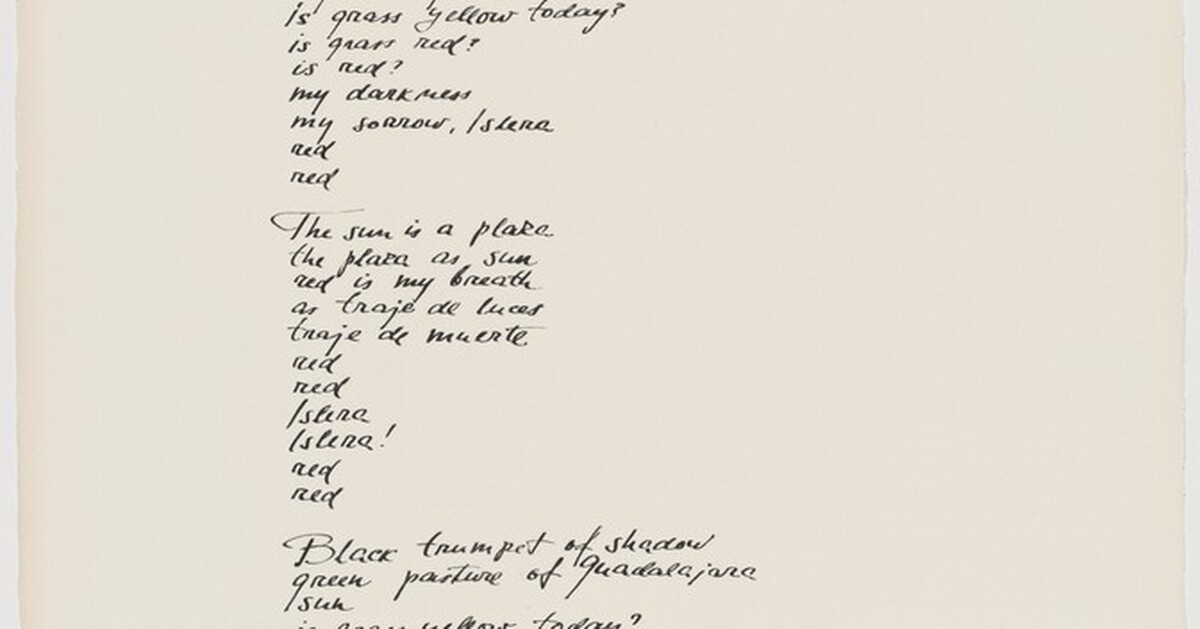 is grass yellow today?
is grass red?
is red?
my darkness
my sorrow, Islera
red
red
The sun is a plaza
the plaza as sun
red is my breath
as traje de luces
traje de muerte
red
red
Islera
Islera!
red
red
Black trumpet of shadow
green pasture of Guadalajara
/sun
is grass yellow today?